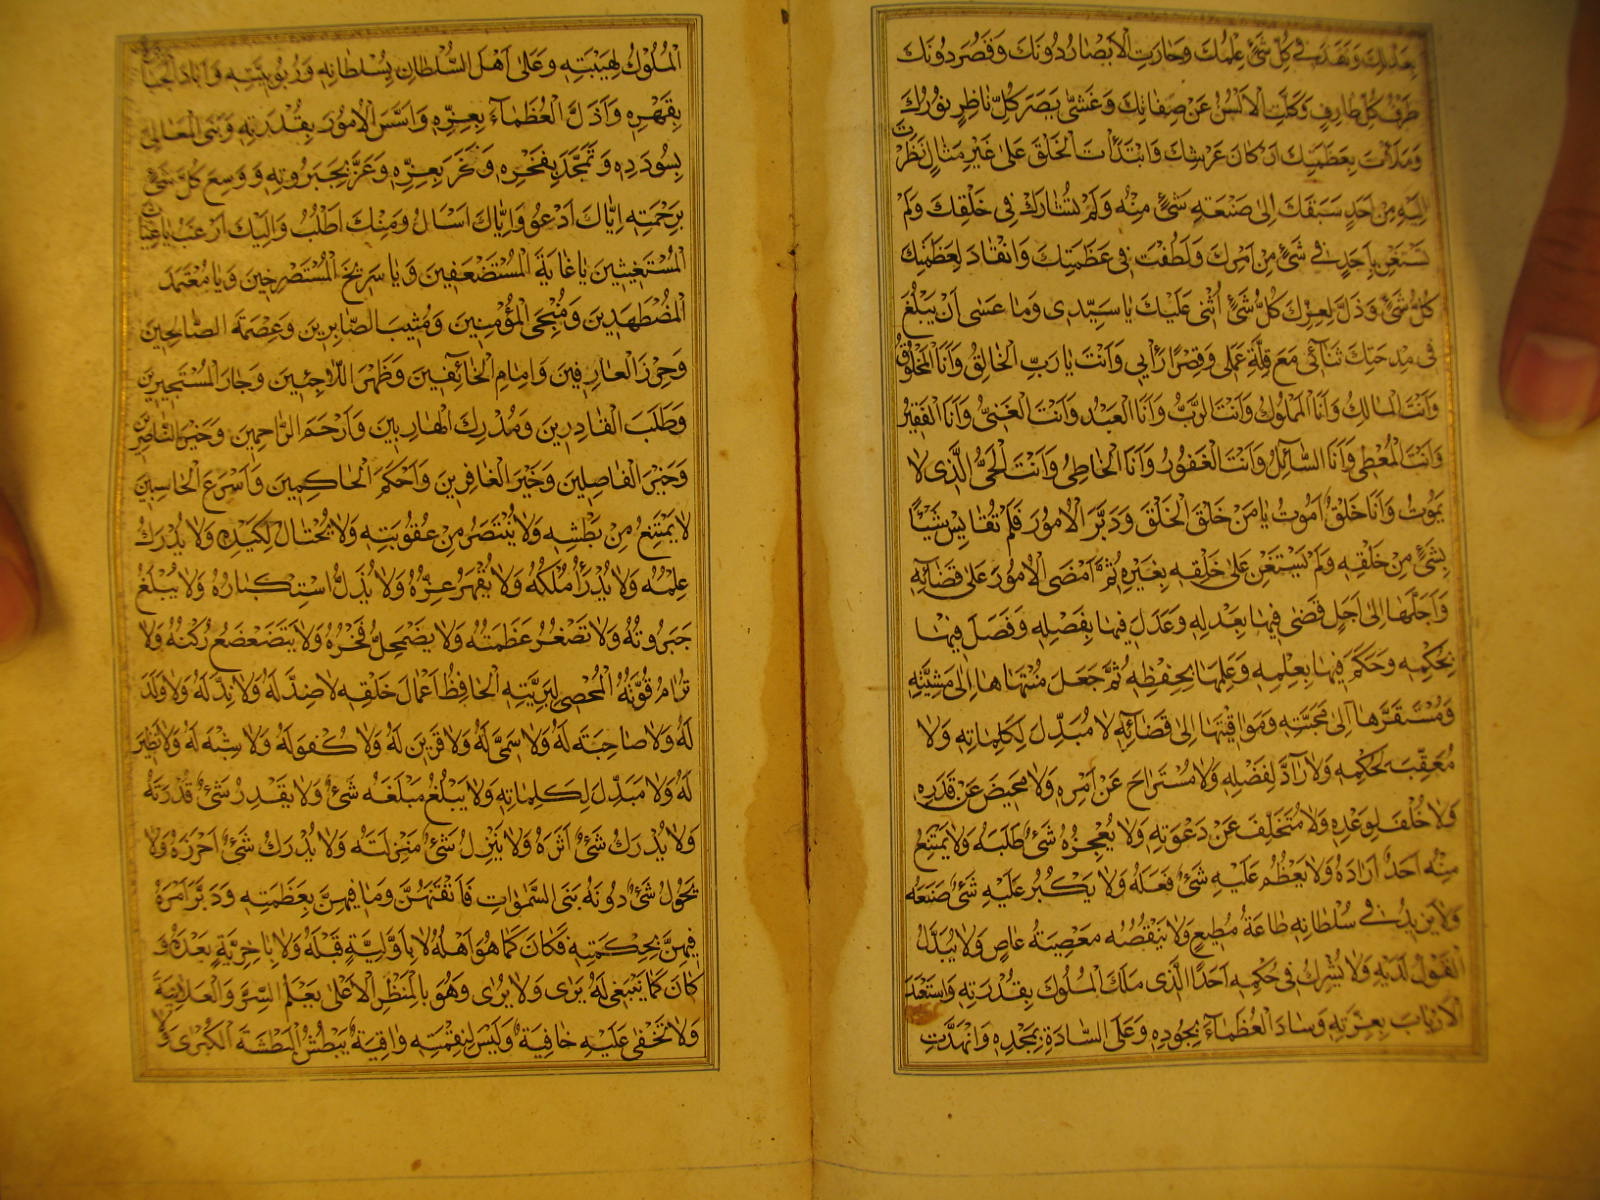 بِعَدْلِكَ وَنَفَذَ فِي كُلِّ شَيْءٍ عِلْمُكَ وَحَارَتِ الْأَبْصَارُ دُونَكَ وَقَصُرَ دُونَكَ
طَرْفُ كُلِّ طَارِفٍ وَكَلَّتِ الْأَلْسُنُ عَنْ صِفَاتِكَ وَغَشِيَ بَصَرَ كُلِّ نَاظِرٍ نُورُكَ
وَمَلَأْتَ بِعَظَمَتِكَ أَرْكَانَ عَرْشِكَ وَابْتَدَأْتَ الْخَلْقَ عَلَى غَيْرِ مِثَالٍ نَظَرْتَ
إِلَيْهِ مِنْ أَحَدٍ سَبَقَكَ إِلَى صَنْعَةِ شَيْءٍ مِنْهُ وَلَمْ تُشَارَكْ فِي خَلْقِكَ وَلَمْ
تَسْتَعِنْ بِأَحَدٍ فِي شَيْءٍ مِنْ أَمْرِكَ وَلَطُفْتَ فِي عَظَمَتِكَ وَانْقَادَ لِعَظَمَتِكَ
كُلُّ شَيْءٍ وَذَلَّ لِعِزِّكَ كُلُّ شَيْءٍ أُثْنِي عَلَيْكَ يَا سَيِّدِي وَمَا عَسَى أَنْ يَبْلُغَ
فِي مِدْحَتِكَ ثَنَائِي مَعَ قِلَّةِ عَمَلِي وَقِصَرِ رَأْيِي وَأَنْتَ يَا رَبِّ الْخَالِقُ وَأَنَا الْمَخْلُوقُ
وَأَنْتَ الْمَالِكُ وَأَنَا الْمَمْلُوكُ وَأَنْتَ الرَّبُّ وَأَنَا الْعَبْدُ وَأَنْتَ الْغَنِيُّ وَأَنَا الْفَقِيرُ
وَأَنْتَ الْمُعْطِي وَأَنَا السَّائِلُ وَأَنْتَ الْغَفُورُ وَأَنَا الْخَاطِي وَأَنْتَ الْحَيُّ الَّذِي لَا
يَمُوتُ وَأَنَا خَلْقٌ أَمُوتُ يَا مَنْ خَلَقَ الْخَلْقَ وَدَبَّرَ الْأُمُورَ فَلَمْ تُقَايِسْ شَيْئًا
بِشَيْءٍ مِنْ خَلْقِهِ وَلَمْ يَسْتَعِنْ عَلَى خَلْقِهِ بِغَيْرِهِ ثُمَّ أَمْضَى الْأُمُورَ عَلَى قَضَائِهِ
وَأَجَّلَهَا إِلَى أَجَلٍ قَضَى فِيهَا بِعَدْلِهِ وَعَدَلَ فِيهَا بِفَصْلِهِ وَفَصَلَ فِيهَا
بِحُكْمِهِ وَحَكَمَ فِيهَا بِعِلْمِهِ وَعَلِمَهَا بِحِفْظِهِ ثُمَّ جَعَلَ مُنْتَهَاهَا إِلَى مَشِيَّتِهِ
وَمُسْتَقَرَّهَا إِلَى مَحَبَّتِهِ وَمَوَاقِيتَهَا إِلَى قَضَائِهِ لَا مُبَدِّلَ لِكَلِمَاتِهِ وَلَا
مُعَقِّبَ لِحُكْمِهِ وَلَا رَادَّ لِفَضْلِهِ وَلَا مُسْتَرَاحَ عَنْ أَمْرِهِ وَلَا مَحِيصَ عَنْ قَدَرِهِ
وَلَا خُلْفَ لِوَعْدِهِ وَلَا مُتَخَلِّفَ عَنْ دَعْوَتِهِ وَلَا يُعْجِزُهُ شَيْءٌ طَلَبَهُ وَلَا يَمْتَنِعُ
مِنْهُ أَحَدٌ أَرَادَهُ وَلَا يَعْظُمُ عَلَيْهِ شَيْءٌ فَعَلَهُ وَلَا يَكْبُرُ عَلَيْهِ شَيْءٌ صَنَعَهُ
وَلَا يَزِيدُ فِي سُلْطَانِهِ طَاعَةُ مُطِيعٍ وَلَا يَنْقُصُهُ مَعْصِيَةُ عَاصٍ وَلَا يُبَدَّلُ
الْقَوْلُ لَدَيْهِ وَلَا يُشْرِكُ فِي حُكْمِهِ أَحَدًا الَّذِي مَلَكَ الْمُلُوكَ بِقُدْرَتِهِ وَاسْتَعْبَدَ
الْأَرْبَابَ بِعِزَّتِهِ وَسَادَ الْعُظَمَاءَ بِجُودِهِ وَعَلَى السَّادَةِ بِمَجْدِهِ وَانْهَدَّتِ
الْمُلُوكُ لِهَيْبَتِهِ وَعَلَى أَهْلِ السُّلْطَانِ بِسُلْطَانِهِ وَرُبُوبِيَّتِهِ وَأَبَادَ الْجَبَابِرَةَ
بِقَهْرِهِ وَأَذَلَّ الْعُظَمَاءَ بِعِزِّهِ وَأَسَّسَ الْأُمُورَ بِقُدْرَتِهِ وَبَنَى الْمَعَالِيَ
بِسُودَدِهِ وَتَمَجَّدَ بِفَخْرِهِ وَفَخَرَ بِعِزِّهِ وَعَزَّ بِجَبَرُوتِهِ وَوَسِعَ كُلَّ شَيْءٍ
بِرَحْمَتِهِ إِيَّاكَ أَدْعُو وَإِيَّاكَ أَسْأَلُ وَمِنْكَ أَطْلُبُ وَإِلَيْكَ أَرْغَبُ يَا غِيَاثَ
الْمُسْتَغِيثِينَ يَا غَايَةَ الْمُسْتَضْعَفِينَ وَيَا صَرِيخَ الْمُسْتَصْرِخِينَ وَيَا مُعْتَمَدَ
الْمُضْطَهَدِينَ وَمُنْجِيَ الْمُؤْمِنِينَ وَمُثِيبَ الصَّابِرِينَ وَعِصْمَةَ الصَّالِحِينَ
وَحِرْزَ الْعَارِفِينَ وَأَمَانَ الْخَائِفِينَ وَظَهْرَ اللَّاجِئِينَ وَجَارَ الْمُسْتَجِيرِينَ
وَطَلَبَ الْقَادِرِينَ وَمُدْرِكَ الْهَارِبِينَ وَأَرْحَمَ الرَّاحِمِينَ وَخَيْرَ النَّاصِرِينَ
وَخَيْرَ الْفَاصِلِينَ وَخَيْرَ الْغَافِرِينَ وَأَحْكَمَ الْحَاكِمِينَ وَأَسْرَعَ الْحَاسِبِينَ
لَا يَمْتَنِعُ مِنْ بَطْشِهِ وَلَا يُنْتَصَرُ مِنْ عُقُوبَتِهِ وَلَا يُحْتَالُ لِكَيْدِهِ وَلَا يُدْرَكُ
عِلْمُهُ وَلَا يُدْرَأُ مُلْكُهُ وَلَا يُقْهَرُ عِزُّهُ وَلَا يُذَلُّ اسْتِكْبَارُهُ وَلَا يُبْلَغُ
جَبَرُوتُهُ وَلَا تَصْغُرُ عَظَمَتُهُ وَلَا يَضْمَحِلُّ فَخْرُهُ وَلَا يَتَضَعْضَعُ رُكْنُهُ وَلَا
تُرَامُ قُوَّتُهُ الْمُحْصِي لِبَرِيَّتِهِ الْحَافِظُ أَعْمَالَ خَلْقِهِ لَا ضِدَّ لَهُ وَلَا نِدَّ لَهُ وَلَا وَلَدَ
لَهُ وَلَا صَاحِبَةَ لَهُ وَلَا سَمِيَّ لَهُ وَلَا قَرِينَ لَهُ وَلَا كُفْوَ لَهُ وَلَا شِبْهَ لَهُ وَلَا نَظِيرَ
لَهُ وَلَا مُبَدِّلَ لِكَلِمَاتِهِ وَلَا يَبْلُغُ مَبْلَغَهُ شَيْءٌ وَلَا يَقْدِرُ شَيْءٌ قُدْرَتَهُ
وَلَا يُدْرِكُ شَيْءٌ أَثَرَهُ وَلَا يَنْزِلُ شَيْءٌ مَنْزِلَتَهُ وَلَا يُدْرَكُ شَيْءٌ أَحْرَزَهُ وَلَا
يَحُولُ شَيْءٌ دُونَهُ بَنَى السَّمٰوَاتِ فَأَتْقَنَهُنَّ وَمَا فِيهِنَّ بِعَظَمَتِهِ وَدَبَّرَ أَمْرَهُ
فِيهِنَّ بِحِكْمَتِهِ فَكَانَ كَمَا هُوَ أَهْلُهُ لَا بِأَوَّلِيَّةٍ قَبْلَهُ وَلَا بِآخِرِيَّةٍ بَعْدَهُ وَ
كَانَ كَمَا يَنْبَغِي لَهُ يَرَى وَلَا يُرَى وَهُوَ بِالْمَنْظَرِ الْأَعْلَى يَعْلَمُ السِّرَّ وَالْعَلَانِيَةَ
وَلَا تَخْفَى عَلَيْهِ خَافِيَةٌ وَلَيْسَ لِنِقْمَتِهِ وَاقِيَةٌ يَبْطِشُ الْبَطْشَةَ الْكُبْرَى وَ